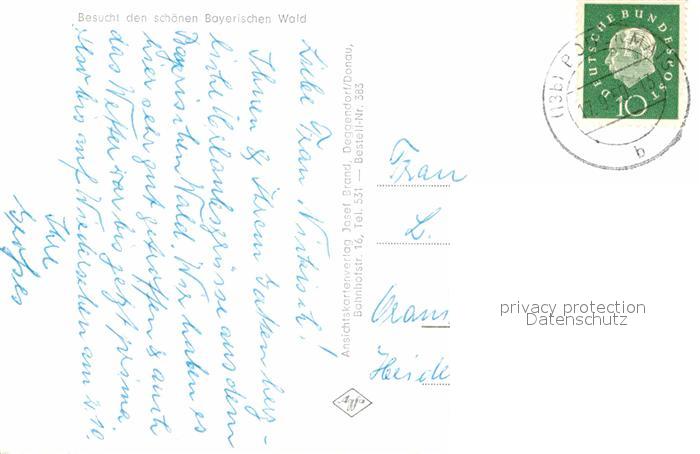 Besucht den schönen Bayerischen Wald
Liebe Frau
Ihnen & Ihrem Gatten herz-
liche Urlaubsgrüsse aus dem
Bayerischen Wald. Wir haben es
hier sehr gut getroffen & auch
das Wetter war bis jetzt prima.
Also bis auf Wiedersehen am 4.10.
Ihre
Ansichtskartenverlag Josef Brand, Deggendorf/Donau,
Bahnhofstr. 16, Tel. 531 — Bestell-Nr. 383
Agfa
Frau
L.
Heide
DEUTSCHE BUNDESPOST
10
(13b)
b
privacy protection
Datenschutz